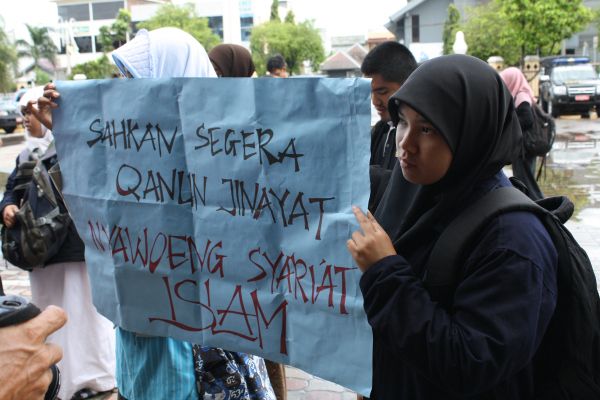 SAHKAN SEGERA
QANUN JINAYAT
NYAWOENG SYARI'AT
ISLAM